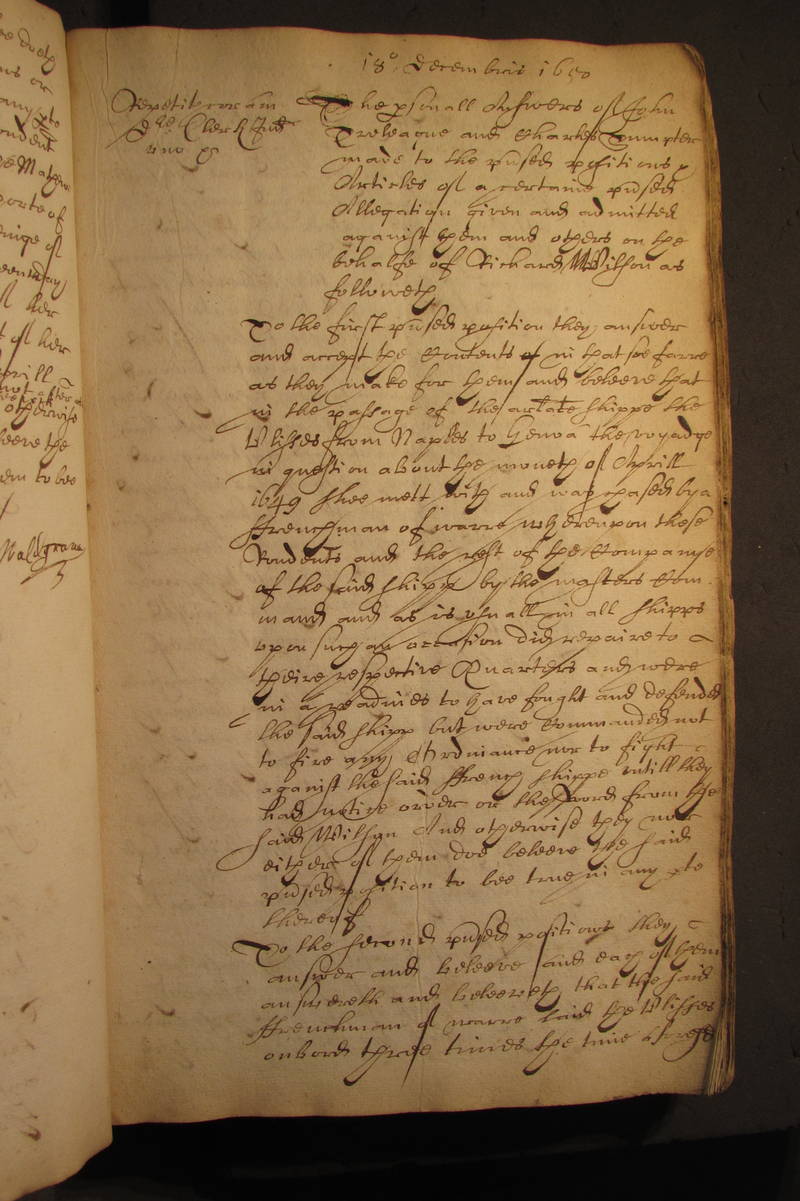 18o. Decembris 1650
Repetit coram
Dre Clerk Jud
The psonall Answers of John
Treleagne and Charles Sumpter
made to the ptused positions &
Articles of a certaine ptused
Allegation given and admitted
against them and others on the
behalfe of Richard Wilson as
followeth
To the first ptused position they answer
and accept the Contents of in that soe farre
as they make for them and beleeve that
in the passage of the arlate shippe the
Ulisses from Naples to Genoa the voyadge
in question about the moneth of Aprill
1649 shee mett with and was chased by a
ffrenchman of warre whereupon these
Rendents and the rest of the Companye
of the said shipp by the masters Com
mand and as is usuall in all shipps
upon such an occasion did repaire to
theire respective Quarters and were
in a readines to have fought and defended
the said shipp but were Commanded not
to fire any Ordniance nor to fight
against the said ffrench shippe untill they
had notice order or the Word from the
said Wilson And otherwise they nor
either of them doe beleeve the said
ptused position to bee true in any pte
thereof
To the second ptused positions they
answer and beleeve and each of them
answereth and beleeveth that the said
ffrenchman of warre laid the Ulisses
onbord three times the time
prill
not
otherwise
leeve the
em to bee
of her
of her
orte of